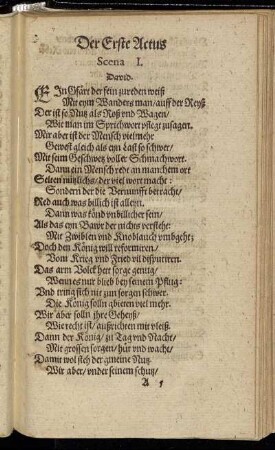 Der Erste Actus
Scena I.
David.
EIn Gfärt der fein zu reden weiß
Mit eym Wandersman / auff der Reyß
Der ist so Nutz als Roß vnd Wagen /
Wie man im Sprichwort pflegt zusagen.
Mir aber ist der Mensch vielmehr
Gewest gleich als eyn Last so schwer /
Mit seim Geschwetz voller Schmachwort.
Dann ein Mensch rede an manchem ort
Selten nützlichs / der viel wort macht:
Sondern der die Vernunfft betracht /
Red auch was billich ist alleyn.
Dann was könd vnbillicher sein /
Als das eyn Bawr der nichts verstehe:
Mit Zwiblen vnd Knoblauch vmbgeht;
Doch den König will reformiren /
Vom Krieg vnd Fried vil disputiren.
Das arm Volck hett sorge genug /
Wenn es nur blieb bey seinem Pflug:
Vnd wing sich nit zun sorgen schwer.
Die König solln gbieten viel mehr.
Wir aber solln ihre Geheyß /
Wie recht ist / außrichten mit vleiß.
Dann der König / zu Tag vnd Nacht /
Mit grossen sorgen / hüt vnd wacht /
Damit wol steh der gmeine Nutz.
Wir aber / vnder seinem schutz /
A 5